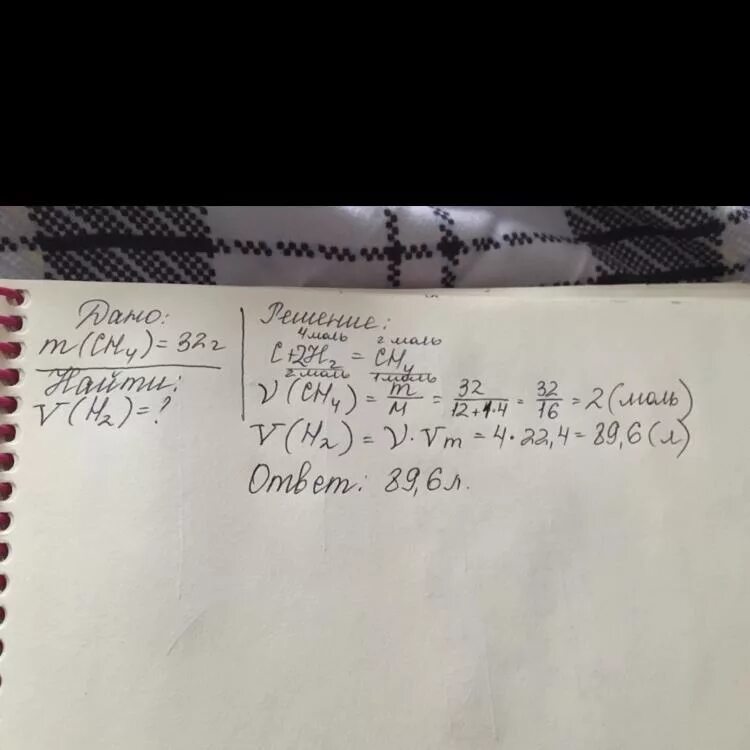 Дано:
m(CH₄) = 32г
Найти:
V(H₂) = ?
Решение:
4 моль 2 моль
C+2H₂ = CH₄
2 моль 1 моль
ν(CH₄) = m/M = 32/(12+1·4) = 32/16 = 2 (моль)
V(H₂) = ν·Vm = 4·22,4 = 89,6 (л)
Ответ: 89,6 л.